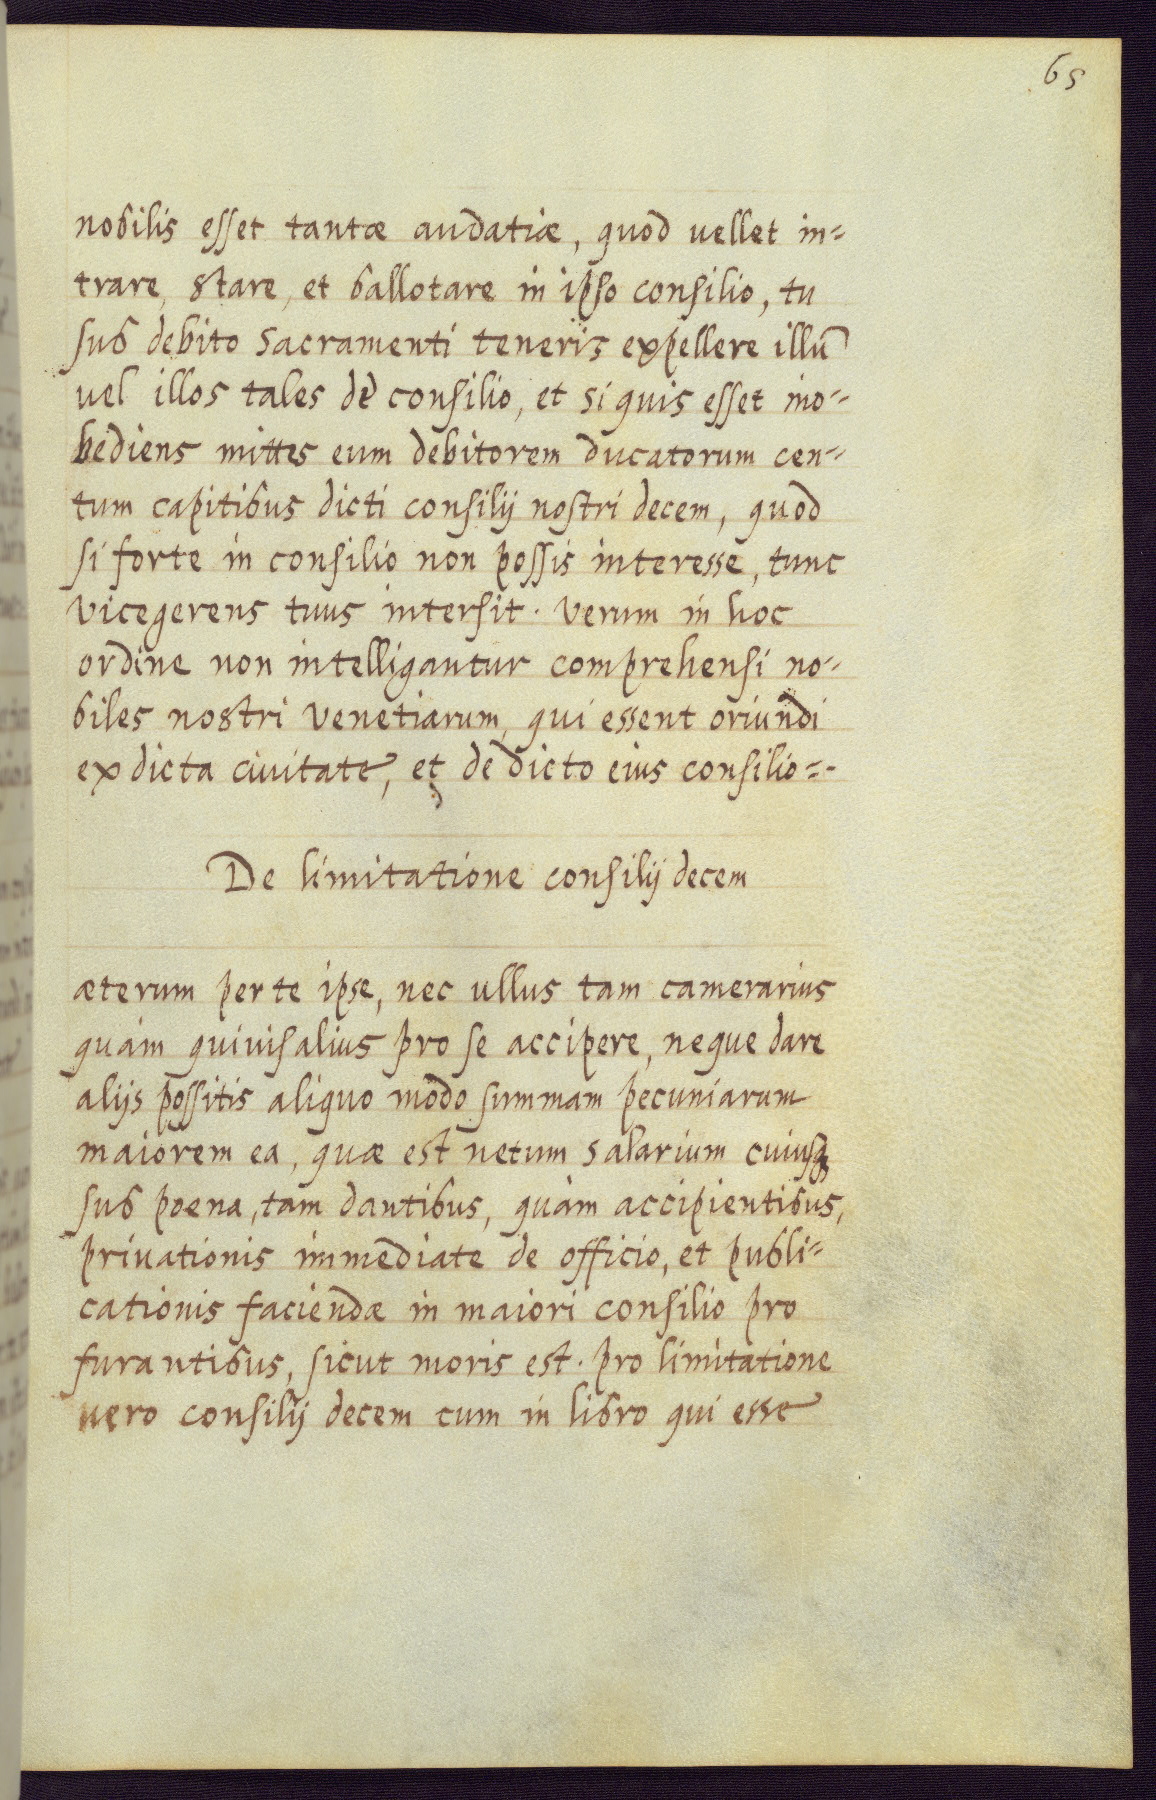 65
nobilis esset tantæ audatiæ, quod uellet in=
trare, stare, et ballotare in ipso consilio, tu
sub debito sacramenti teneris expellere illū
uel illos tales de consilio, et si quis esset ino=
bediens mittes eum debitorem ducatorum cen=
tum capitibus dicti consilij nostri decem, quod
si forte in consilio non possis interesse, tunc
vicegerens tuus intersit. Verum in hoc
ordine non intelligantur comprehensi no=
biles nostri Venetiarum, qui essent oriundi
ex dicta ciuitate, et de dicto eius consilio=.
De limitatione consilij decem
æterum per te ipse, nec ullus tam camerarius
quàm quiuis alius pro se accipere, neque dare
alijs possitis aliquo modo summam pecuniarum
maiorem ea, quæ est netum salarium cuiusq;
sub poena, tam dantibus, quàm accipientibus,
priuationis immediate de officio, et publi=
cationis faciendæ in maiori consilio pro
furantibus, sicut moris est. pro limitatione
uero consilij decem cum in libro qui esse